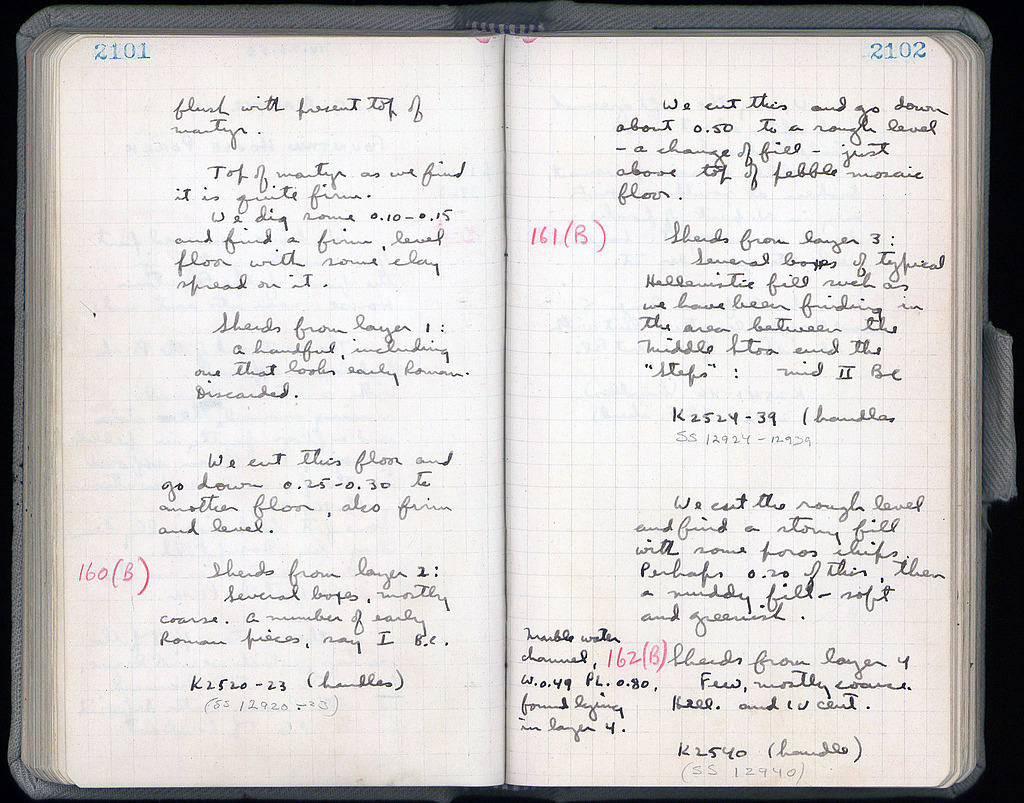 2101
flush with present top of
martyr.
Top of martyr. as we find
it is quite firm.
We dig some 0.10-0.15
and find a firm, level
floor with some clay
spread on it.
Sherds from layer 1:
a handful, including
one that looks early Roman.
Discarded.
We cut this floor and
go down 0.25-0.30 to
another floor, also firm
and level.
160(B)
Sherds from layer 2:
Several boxes, mostly
coarse. A number of early
Roman pieces, say I B.C.
K2520-23 (handles)
(SS 12920-23)
2102
We cut this and go down
about 0.50 to a rough level
- a change of fill - just
above top of pebble mosaic
floor.
161(B)
Sherds from layer 3:
Several boxes of typical
Hellenistic fill such as
we have been finding in
the area between the
Middle Stoa and the
"Steps": mid II BC
K2524-39 (handles
SS 12924-12939
We cut the rough level
and find a stony fill
with some poros chips.
Perhaps 0.20 of this, then
a muddy fill - soft
and greenish.
Marble water
channel,
W. 0.49 PL. 0.80,
found lying
in layer 4.
162(B)
Sherds from layer 4
Few, mostly coarse.
Hell. and IV cent.
K2540 (handle)
(SS 12940)